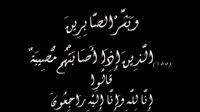 وَبَشِّرِ الصَّابِرِينَ
(١٥٥) الَّذِينَ إِذَا أَصَابَتْهُم مُّصِيبَةٌ
قَالُوا
إِنَّا لِلَّهِ وَإِنَّا إِلَيْهِ رَاجِعُونَ